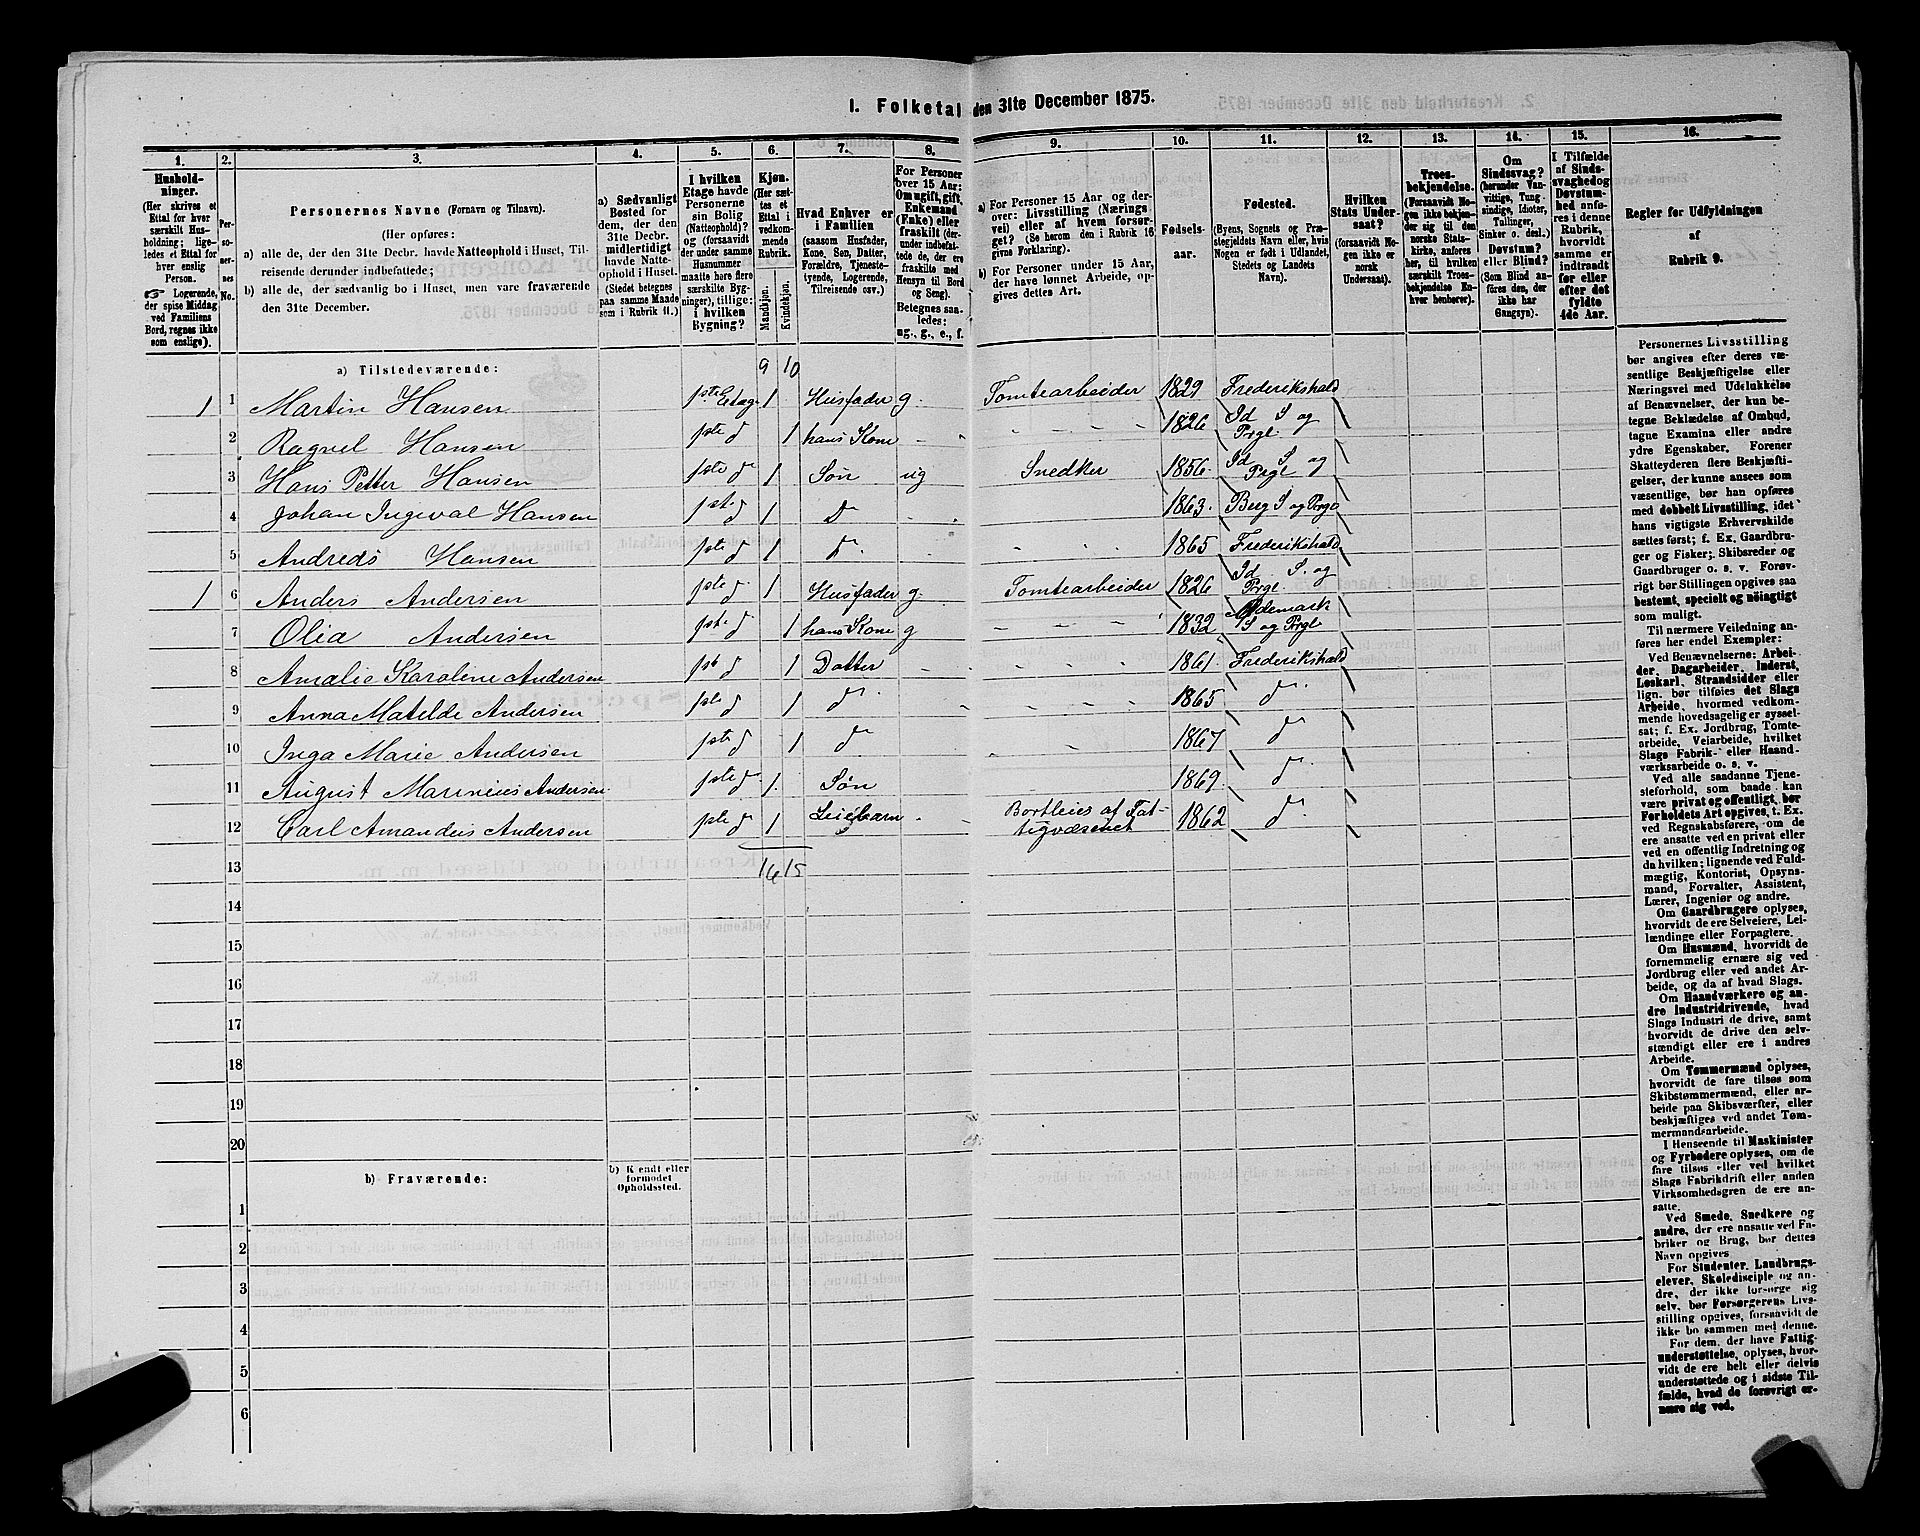 1. Folketal den 31te December 1875.
1. 2. 3. 4. 5. 6. 7. 8. 9. 10. 11. 12. 13. 14. 15. 16.
Hushold-
ninger.
(Her skrives et
Ettal for hver
særskilt Hus-
holdning; lige-
ledes et Ettal for
hver enslig
Person.
☞ Logerende,
der spise Middag
ved Familiens
Bord, regnes ikke
som enslige).
Per-
so-
ner-
nes
No.
Personernes Navne (Fornavn og Tilnavn).
(Her opføres:
a) alle de, der den 31te Decbr. havde Natteophold i Huset, Til-
reisende derunder indbefattede;
b) alle de, der sædvanlig bo i Huset, men vare fraværende
den 31te December.
a) Sædvanligt
Bosted for
dem, der den
31te Decbr.
midlertidigt
havde Natte-
ophold i Huset.
(Stedet betegnes
paa samme Maade
som i Rubrik 11.)
I hvilken
Etage havde
Personerne
sin Bolig
(Natteophold)?
og (forsaavidt
der under samme
Husnummer
maatte høre flere
særskilte Byg-
ninger), tillige:
i hvilken
Bygning?
Kjøn.
(Her sæt-
tes et
Ettal i
vedkom-
mende
Rubrik.
Mandskjøn.
Kvindekjøn.
Hvad Enhver er
i Familien
(saasom Husfader,
Kone, Søn, Datter,
Forældre, Tjeneste-
tyende, Logerende,
Tilreisende osv.)
For Personer
over 15 Aar:
Om ugift, gift,
Enkemand
(Enke) eller
fraskilt (der-
under indbefat-
tede de, der ere
fraskilte med
Hensyn til Bord
og Seng).
Betegnes saa-
ledes:
ug., g., e., f.
a) For Personer 15 Aar og der-
over: Livsstilling (Nærings
vei) eller af hvem forsør-
get? (Se herom den i Rubrik 16
givne Forklaring).
b) For Personer under 15 Aar,
der have lønnet Arbeide, op-
gives dettes Art.
Fødsels-
aar.
Fødested.
(Byens, Sognets og Præ-
stegjeldets Navn eller, hvis
Nogen er født i Udlandet,
Stedets og Landets
Navn).
Hvilken
Stats Under-
saat?
(forsaavidt No-
gen ikke er
norsk
Undersaat).
Troes-
bekjendelse.
(Forsaavidt No-
gen ikke bekjen-
der sig til den
norske Stats-
kirke, anføres
her, til hvilken
særskilt Troes-
bekjendelse En-
hver henhører).
Om
Sindssvag?
(herunder Van-
vittige, Tung-
sindige, Idioter,
Tullinger,
Sinker o. desl.)
Døvstum?
eller Blind?
(Som Blind an-
føres den, der
ikke har
Gangsyn).
I Tilfælde
af Sinds-
svaghed og
Døvstum-
hed anfø-
res i denne
Rubrik,
hvorvidt
samme er
indtraadt
før eller
efter det
fyldte
4de Aar.
Regler for Udfyldningen
af
Rubrik 9.
a) Tilstedeværende: 9 10
1 1 Martin Hansen 1ste Etage 1 Husfader g. Tomtearbeider 1829 Frederikshald
2 Ragnel Hansen 1ste d 1 hans Kone 1826 Id S og Prgl.
3 Hans Petter Hansen 1ste d 1 Søn ug Snedker 1856 Id S og Prgl
4 Johan Ingeval Hansen 1ste d 1 D 1863 Berg S og Prgl
5 Andreas Hansen 1ste d 1 D. 1865 Frederikshald
1 6 Anders Andersen 1ste d 1 Husfader g. Tomtearbeider 1826 Id S. og Prgl.
7 Olia Andersen 1ste d 1 hans Kone g 1832 Ødemark S og Prgl
8 Amalie Karolene Andersen 1ste d 1 Datter 1861 Frederikshald
9 Anna Matilde Andersen 1ste d 1 d 1865 d.
10 Inga Marie Andersen 1ste d 1 d 1867 d
11 August Marinius Andersen 1ste d 1 Søn 1869 d
12 Carl Amandus Andersen 1ste d 1 Leiebarn Bortleies af Fat-
tigvæsenet 1862 d
13 16 15
14
15
16
17
18
19
20
b) Fraværende:
b) Kjendt eller
formodet
Opholdssted.
1
2
3
4
5
6
Personernes Livsstilling
bør angives efter deres væ-
sentlige Beskjæftigelse eller
Næringsvei med Udelukkelse
af Benævnelser, der kun be-
tegne Beklædelse af Ombud,
tagne Examina eller andre
ydre Egenskaber. Forener
Skatteyderen flere Beskjæfti-
gelser, der kunne ansees som
væsentlige, bør han opføres
med dobbelt Livsstilling, idet
hans vigtigste Erhvervskilde
sættes først; f. Ex. Gaardbru-
ger og Fisker; Skibsreder og
Gaardbruger o. s. v. Forøv-
rigt bør Stillingen opgives saa
bestemt, specielt og nøiagtigt
som muligt.
Til nærmere Veiledning an-
føres her endel Exempler:
Ved Benævnelserne: Arbei-
der, Dagarbeider, Inderst,
Løskarl, Strandsidder eller
lign. bør tilføies det Slags
Arbeide, hvormed vedkom-
mende hovedsagelig er syssel-
sat; f. Ex. Jordbrug, Tomte-
arbeide, Veiarbeide, hvilket
Slags Fabrik- eller Haand-
værksarbeide o. s. v.
Ved alle saadanne Tjene-
steforhold, som baade kan
være privat og offentligt, bør
Forholdets Art opgives, t. Ex.
ved Regnskabsførere, om de
ere ansatte ved en privat eller
ved en offentlig Indretning og
da hvilken; lignende ved Fuld-
mægtig, Kontorist, Opsyns-
mand, Forvalter, Assistent,
Lærer, Ingeniør og andre.
Om Gaardbrugere oplyses,
hvorvidt de ere Selveiere, Lei-
lændinge eller Forpagtere.
Om Husmænd, hvorvidt de
fornemmelig ernære sig ved
Jordbrug eller ved andet Ar-
beide, og da af hvad Slags.
Om Haandværkere og an-
dre Industridrivende, hvad
Slags Industri de drive, samt
hvorvidt de drive den selv-
stændigt eller ere i andres
Arbeide.
Om Tømmermænd oplyses,
hvorvidt de fare tilsøs som
Skibstømmermænd, eller ar-
beide paa Skibsværfter, eller
beskjæftiges ved andet Tøm-
mermandsarbeide.
I Henseende til Maskinister
og Fyrbødere oplyses, om de
fare tilsøs eller ved hvilket
Slags Fabrikdrift eller anden
Virksomhedsgren de ere an-
satte.
Ved Smede, Snedkere og
andre, der ere ansatte ved Fa-
briker og Brug, bør dettes
Navn opgives.
For Studenter, Landbrugs-
elever, Skoledisciple og an-
dre, der ikke forsørge sig
selv, bør Forsørgerens Livs-
stilling opgives, forsaavidt de
ikke bo sammen med denne.
For dem, der have Fattig-
understøttelse, oplyses, hvor-
vidt de ere helt eller delvis
understøttede og i sidste Til-
fælde, hvad de forøvrigt er-
nære sig ved.